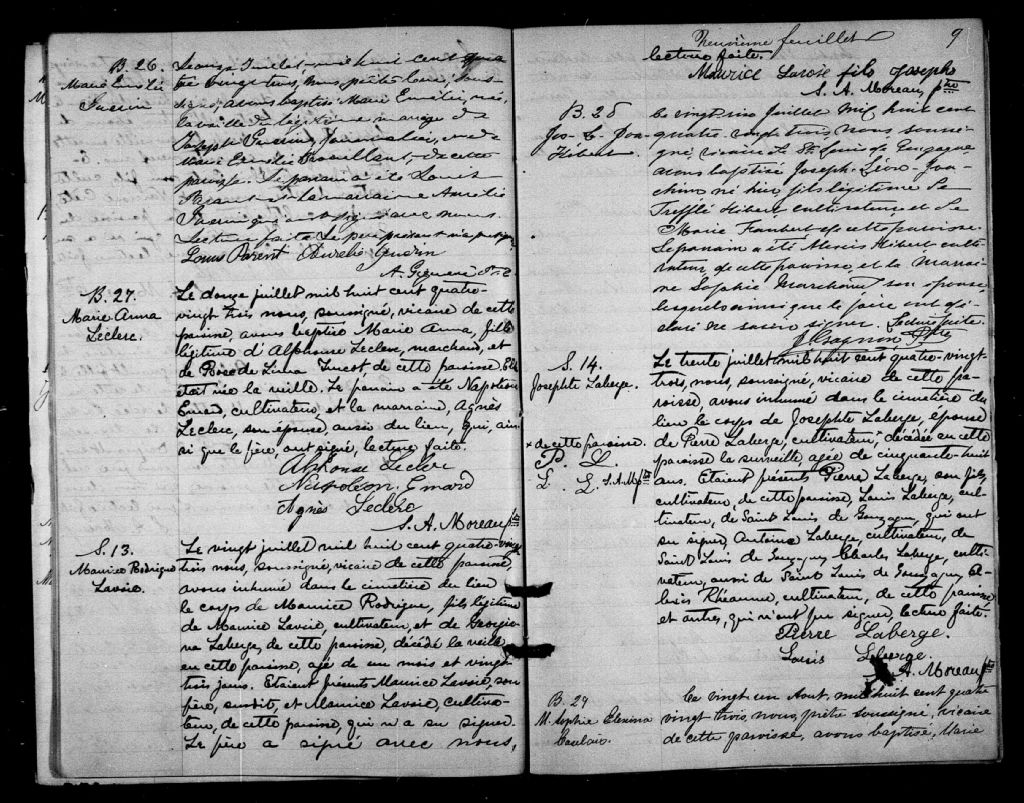 B. 26.
Marie Emélie
Guérin
Le onze Juillet mil huit cent quatre
vingt trois, nous prêtre curé, sous-
signé, avons baptisé Marie Emélie, née
la veille du légitime mariage de
Joseph Guérin, Journalier, et de
Marie Emélie, de cette
paroisse. Le parrain a été Louis
Parent et la marraine Aurélie
Guérin qui ont signé avec nous.
Lecture faite. Le père présent n'a pu signer
Louis Parent Aurélie Guérin
B. 27.
Marie Anna
Leclerc.
Le douze juillet mil huit cent quatre-
vingt trois nous, soussigné, vicaire de cette
paroisse, avons baptisé Marie Anna, fille
légitime d'Alphonse Leclerc, marchand, et
de Rose de Lima de cette paroisse. Elle
était née la veille. Le parrain a été Napoléon
Emard, cultivateur, et la marraine, Agnès
Leclerc, son épouse, aussi du lieu, qui, ain-
si que le père, ont signé, lecture faite.
Alphonse Leclerc
Napoleon Emard
Agnès Leclerc
S. A. Moreau ptre
S. 13.
Maurice Rodrigue
Lavoie.
Le vingt juillet mil huit cent quatre-vingt
trois nous, soussigné, vicaire de cette paroisse,
avons inhumé dans le cimetière du lieu
le corps de Maurice Rodrigue, fils légitime
de Maurice Lavoie, cultivateur, et de Georgia-
na Laberge, de cette paroisse, décédé la veille
en cette paroisse, agé de un mois et vingt
trois jours. Etaient présents Maurice Lavoie, son
père, susdit, et Maurice Lavoie, cultiva-
teur, de cette paroisse, qui n'a su signer.
Le père a signé avec nous,
Neuvième feuillet
9
lecture faite.
Maurice Lavoie fils Joseph
S. A. Moreau, ptre
B. 28
Jos. L. Joa.
Hébert.
Le vingt six Juillet Mil huit cent
quatre-vingt trois, nous, soussi-
gné, vicaire de St. Louis de Gonzague
avons baptisé Joseph-Léon-Joa-
chim né hier fils légitime de
Trefflé Hébert cultivateur et de
Marie Faubert de cette paroisse.
Le parrain a été Alexis Hébert culti-
vateur de cette paroisse, et la Marrai-
ne Sophie Marchand son épouse
lesquels ainsi que le père ont dé-
claré ne savoir signer. Lecture faite.
S. 14.
Josephte Laberge.
Le trente juillet mil huit cent quatre-vingt-
trois, nous, soussigné, vicaire de cette pa-
roisse, avons inhumé dans le cimetière du
lieu le corps de Josephte Laberge, épouse
x de cette paroisse.
P. L.
L. L. S. A. M ptre
de Pierre Laberge, cultivateur, x décédée en cette
paroisse la surveille, agée de cinquante-huit
ans. Etaient présents Pierre Laberge, son fils,
cultivateur, de cette paroisse, Louis Laberge, cul-
tivateur, de Saint Louis de Gonzague, qui ont
su signer, Antoine Laberge, cultivateur, de
Saint Louis de Gonzague, Charles Laberge, culti-
vateur, aussi de Saint Louis de Gonzague, Al-
exis Rhéaume, cultivateur, de cette paroisse,
et autres, qui n'ont pu signer, lecture faite.
Pierre Laberge.
Louis Laberge.
S. A. Moreau ptre
B. 29
M. Sophie
Le vingt un Aout, mil huit cent quatre
vingt trois, nous, prêtre soussigné, vicaire
de cette paroisse, avons baptisé, Marie